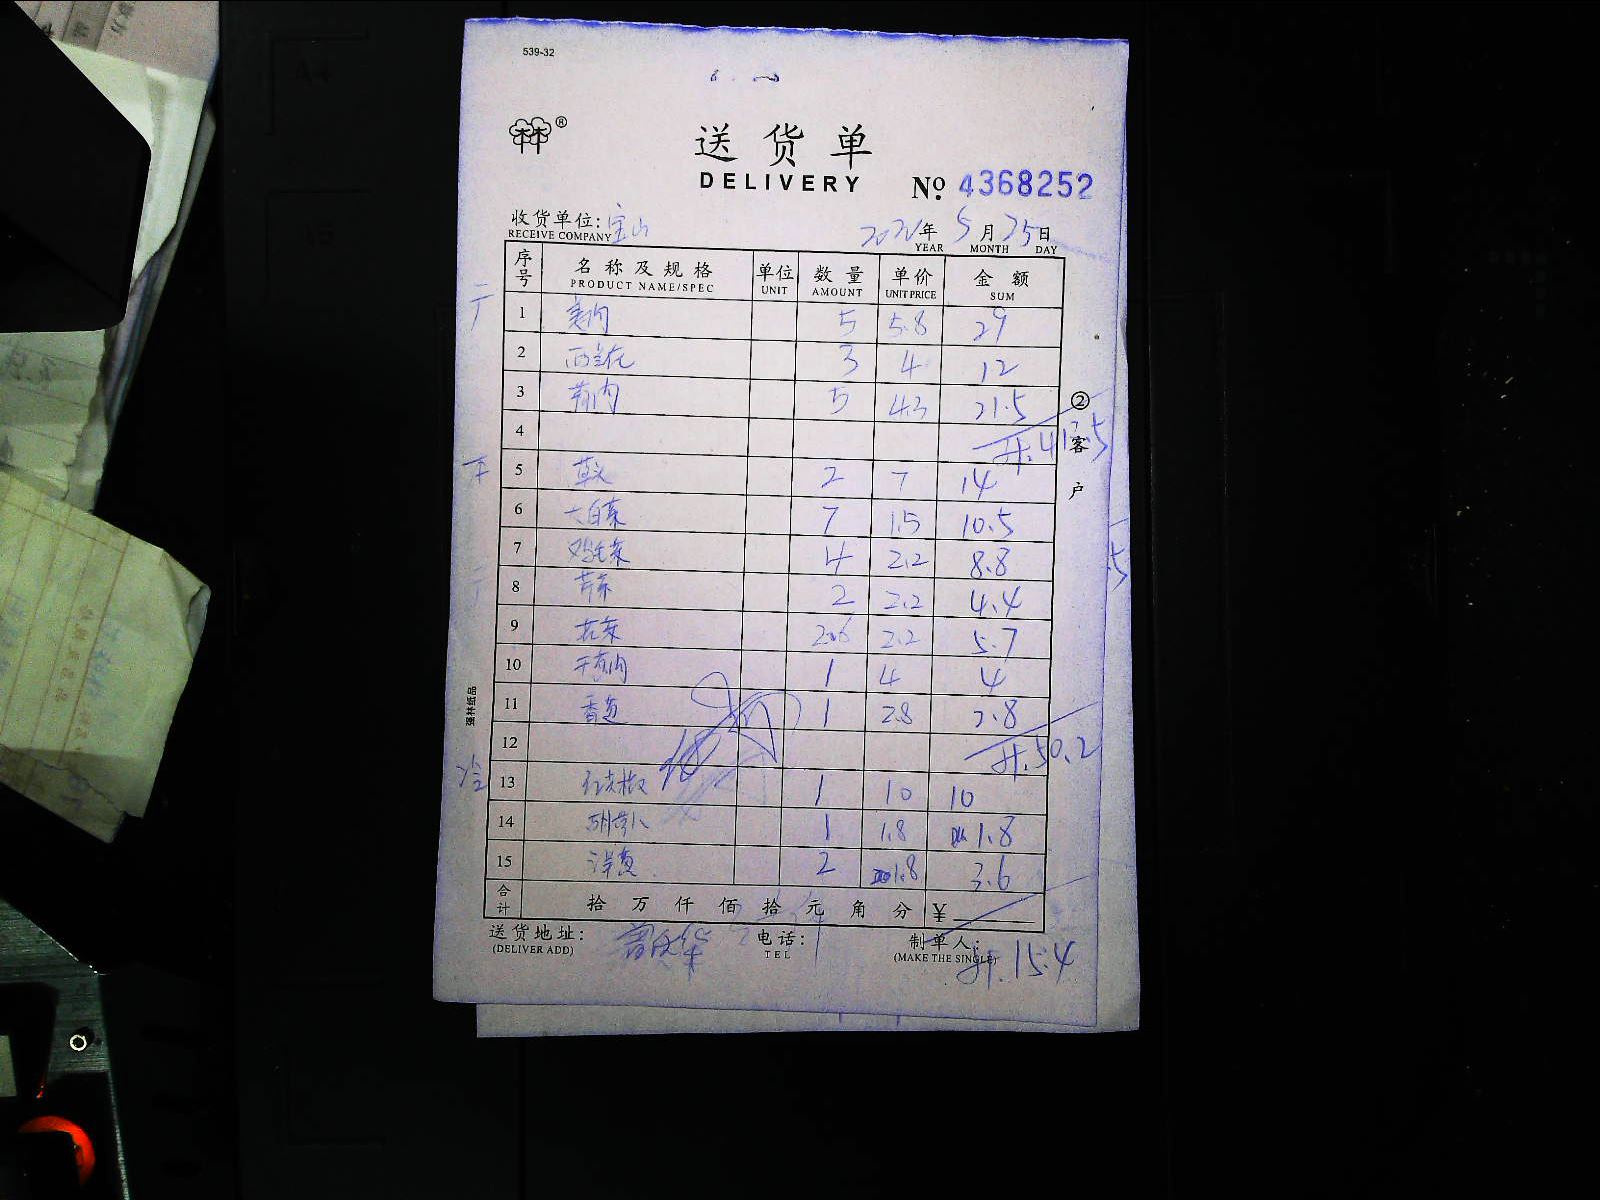 539-32
送货单
DELIVERY
№ 4368252
收货单位: 宝山
RECEIVE COMPANY
年 5月25日
YEAR MONTH DAY
序号 名称及规格 单位 数量 单价 金额
PRODUCT NAME/SPEC UNIT AMOUNT UNIT PRICE SUM
1 5 5.8 29
2 西兰花 3 4 12
3 5 4.3 21.5
4
5 2 7 14
6 大白菜 7 1.5 10.5
7 鸡毛菜 4 2.2 8.8
8 芹菜 2 2.2 4.4
9 花菜 2.6 2.2 5.7
10 1 4 4
11 香葱 1 2.8 2.8
12 50.2
13 红尖椒 1 10 10
14 胡萝卜 1 1.8 1.8
15 洋葱 2 1.8 3.6
合计 拾 万 仟 佰 拾 元 角 分 ¥
送货地址: 电话: 制单人:
(DELIVER ADD) TEL (MAKE THE SINGLE)
15.4
②客户
强林纸品